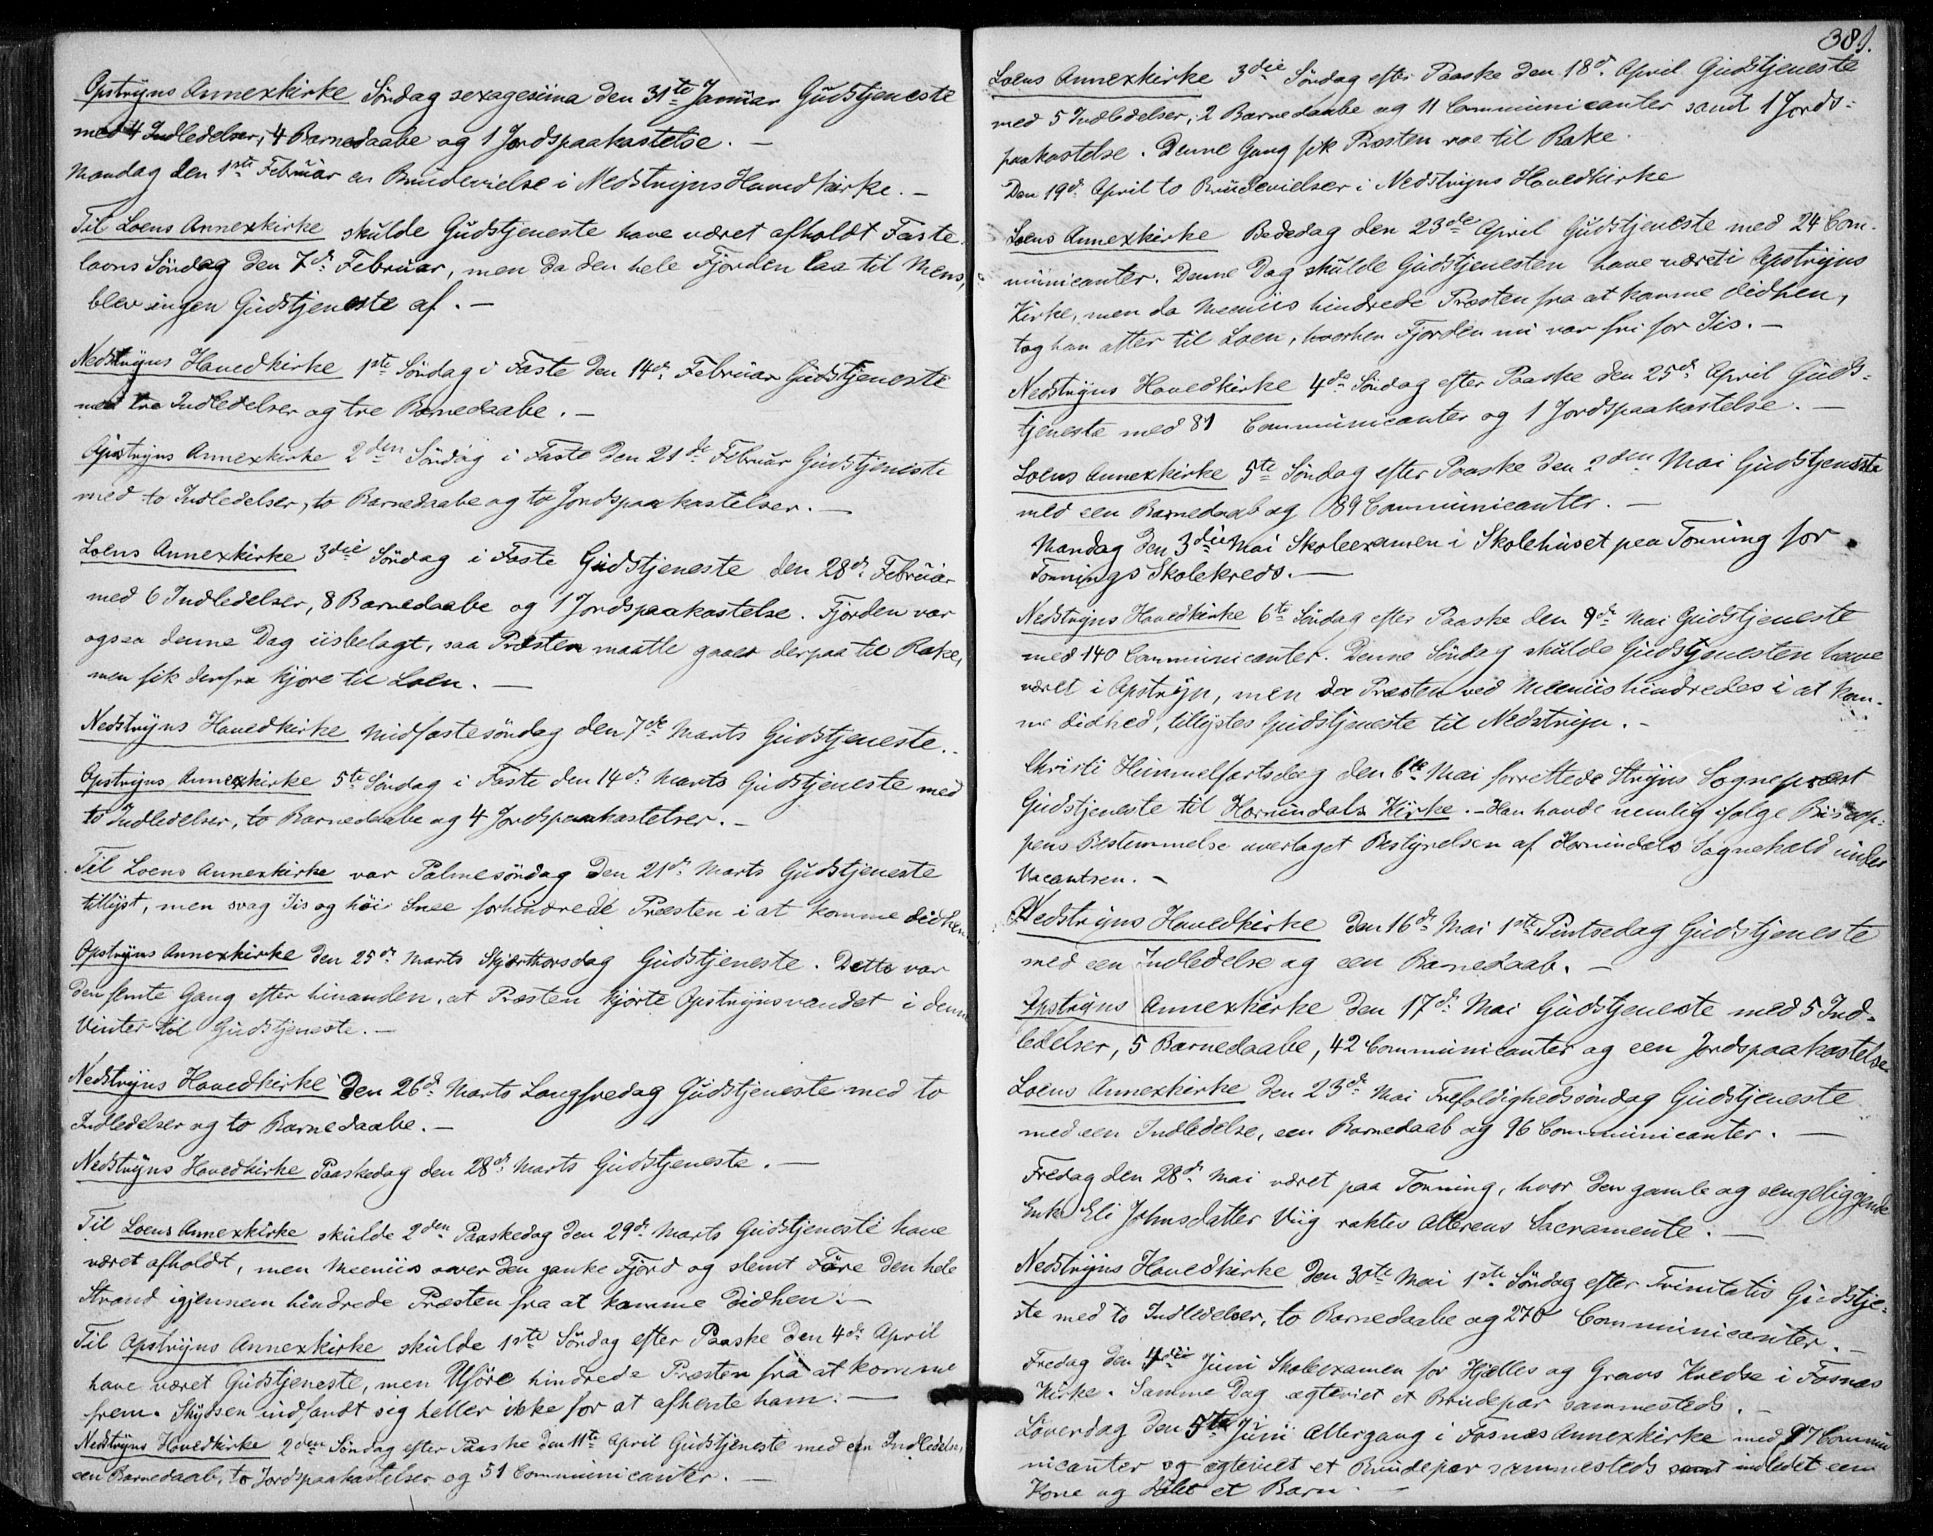 Opstryns Annexkirke Søndag sexagesima den 31te Januar Gudstjeneste
med 4 Indledelser, 4 Barnedaabe og 1 Jordspaakastelse. —
Mandag den 1ste Februar en Brudevielse i Nedstryns Hovedkirke. —
Til Loens Annexkirke skulde Gudstjeneste have været afholdt Faste-
lavns Søndag den 7de Februar, men da den hele Fjorden laa til Mens,
blev ingen Gudstjeneste af. —
Nedstryns Hovedkirke 1ste Søndag i Faste den 14de Februar Gudstjeneste
med tre Indledelser og tre Barnedaabe. —
Opstryns Annexkirke 2den Søndag i Faste den 21de Februar Gudstjeneste
med to Indledelser, to Barnedaabe og to Jordspaakastelser. —
Loens Annexkirke 3die Søndag i Faste Gudstjeneste den 28de Februar
med 6 Indledelser, 8 Barnedaabe og 1 Jordspaakastelse. Fjorden var
ogsaa denne Dag iisbelagt, saa Præsten maatte gaaes derpaa til Rake,
men fik derfra kjøre til Loen. —
Nedstryns Hovedkirke Midfastesøndag den 7de Marts Gudstjeneste. —
Opstryns Annexkirke 5te Søndag i Faste den 14de Marts Gudstjeneste med
to Indledelser, to Barnedaabe og 4 Jordspaakastelser. —
Til Loens Annexkirke var Palmesøndag den 21de Marts Gudstjeneste
tillyst, men svag Iis og høi Snee forhindrede Præsten i at komme didhen
Opstryns Annexkirke den 25de Marts Skjærthorsdag Gudstjeneste. Dette var
den femte Gang efter hinanden, at Præsten kjørte Opstrynsvandet i denne
Vinter til Gudstjeneste. —
Nedstryns Hovedkirke den 26de Marts Langfredag Gudstjeneste med to
Indledelser og to Barnedaabe. —
Nedstryns Hovedkirke Paaskedag den 28de Marts Gudstjeneste. —
Til Loens Annexkirke skulde 2den Paaskedag den 29de Marts Gudstjeneste have
været afholdt, men Meeniis over den ganske Fjord og slemt Føre den hele
Strand igjennem hindrede Præsten fra at komme didhen. —
Til Opstryns Annexkirke skulde 1ste Søndag efter Paaske den 4de April
have været Gudstjeneste, men Uføre hindrede Præsten fra at komme
frem. Skydsen indfandt sig heller ikke for at afhente ham. —
Nedstryns Hovedkirke 2den Søndag efter Paaske den 11te April Gudstjeneste med een Indledelse,
een Barnedaab, to Jordspaakastelser og 51 Communicanter. —
381.
Loens Annexkirke 3die Søndag efter Paaske den 18de April Gudstjeneste
med 5 Indledelser, 2 Barnedaabe og 11 Communicanter samt 1 Jords-
paakastelse. Denne Gang fik Præsten roe til Rake.
Den 19de April to Brudevielser i Nedstryns Hovedkirke
Loens Annexkirke Bededag den 23de April Gudstjeneste med 24 Com-
municanter. Denne Dag skulde Gudstjenesten have været i Opstryns
Kirke, men da Meeniis hindrede Præsten fra at komme didhen,
tog han atter til Loen, hvorhen Fjorden nu var fri for Iis. —
Nedstryns Hovedkirke 4de Søndag efter Paaske den 25de April Guds-
tjeneste med 81 Communicanter og 1 Jordspaakastelse. —
Loens Annexkirke 5te Søndag efter Paaske den 2den Mai Gudstjeneste
med een Barnedaab og 89 Communicanter. —
Mandag den 3die Mai Skoleexamen i Skolehuset paa Tonning for
Tonnings Skolekreds. —
Nedstryns Hovedkirke 6te Søndag efter Paaske den 9de Mai Gudstjeneste
med 140 Communicanter. Denne Søndag skulde Gudstjenesten have
været i Opstryn, men da Præsten ved Meeniis hindredes i at kom-
me didhed, tillystes Gudstjeneste til Nedstryn. —
Christi Himmelfartsdag den 6te Mai forrettede Stryns Sognepræst
Gudstjeneste til Hornindals Kirke. — Han havde nemlig ifølge Biskop-
pens Bestemmelse overtaget Bestyrelsen af Hornindals Sognekald under
Vacantsen. —
Nedstryns Hovedkirke den 16de Mai 1ste Pintsedag Gudstjeneste
med een Indledelse og een Barnedaab. —
Opstryns Annexkirke den 17de Mai Gudstjeneste med 5 Ind-
ledelser, 5 Barnedaabe, 42 Communicanter og een Jordspaakastelse
Loens Annexkirke den 23de Mai Trefoldighedssøndag Gudstjeneste
med een Indledelse, een Barnedaab og 96 Communicanter. —
Fredag den 28de Mai været paa Tonning, hvor den gamle og sengeliggende
Enke Eli Johnsdatter Viig raktes Alterens Sacramente. —
Nedstryns Hovedkirke den 30te Mai 1ste Søndag efter Trinitatis Gudstje-
ste med to Indledelser, to Barnedaabe og 270 Communicanter. —
Fredag den Juni Skoleexamen for Hjelles og Gravs Kredse i Fosnæs
Kirke. Samme Dag ægteviet et Brudepar sammesteds. —
Løverdag den 5te Juni Altergang i Fosnæs Annexkirke med 97 Commu
nicanter og ægteviet et Brudepar sammesteds samt indledet een
Kone og døbt et Barn. —